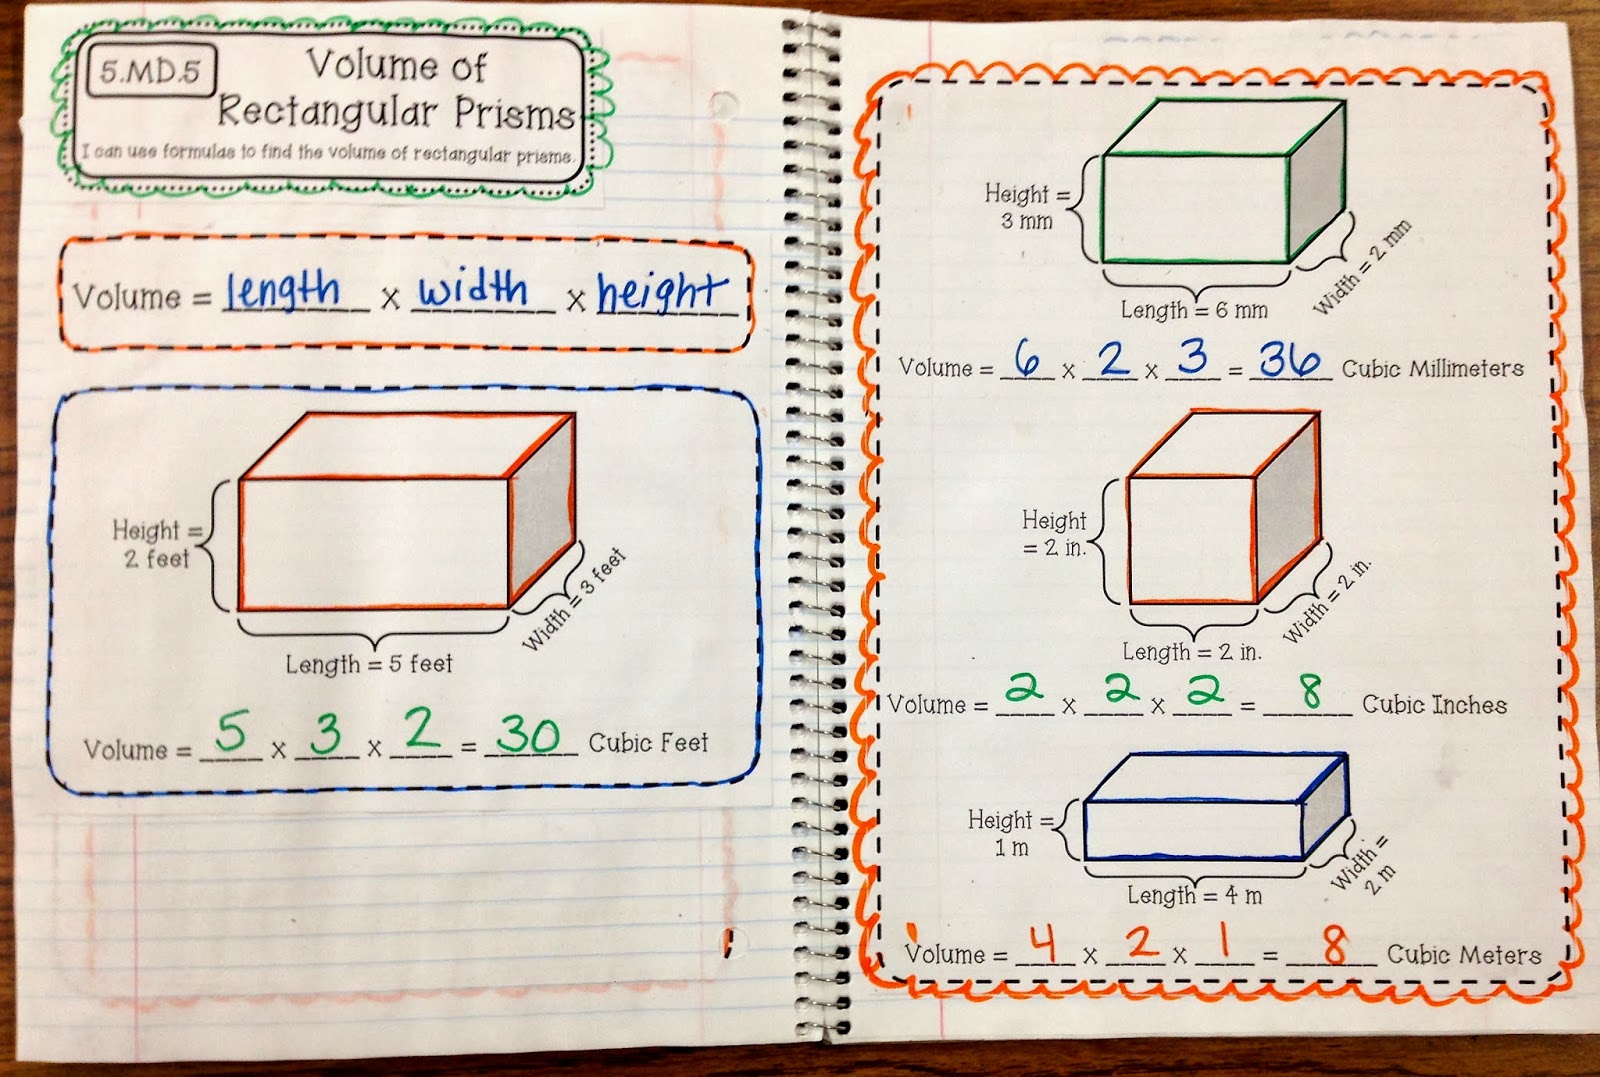 5.MD.5
Volume of
Rectangular Prisms
I can use formulas to find the volume of rectangular prisms.
Volume = length x width x height
Height =
2 feet
Width = 3 feet
Length = 5 feet
Volume = 5 x 3 x 2 = 30 Cubic Feet
Height =
3 mm
Width = 2 mm
Length = 6 mm
Volume = 6 x 2 x 3 = 36 Cubic Millimeters
Height
= 2 in.
Width = 2 in.
Length = 2 in.
Volume = 2 x 2 x 2 = 8 Cubic Inches
Height =
1 m
Width =
2 m
Length = 4 m
Volume = 4 x 2 x 1 = 8 Cubic Meters